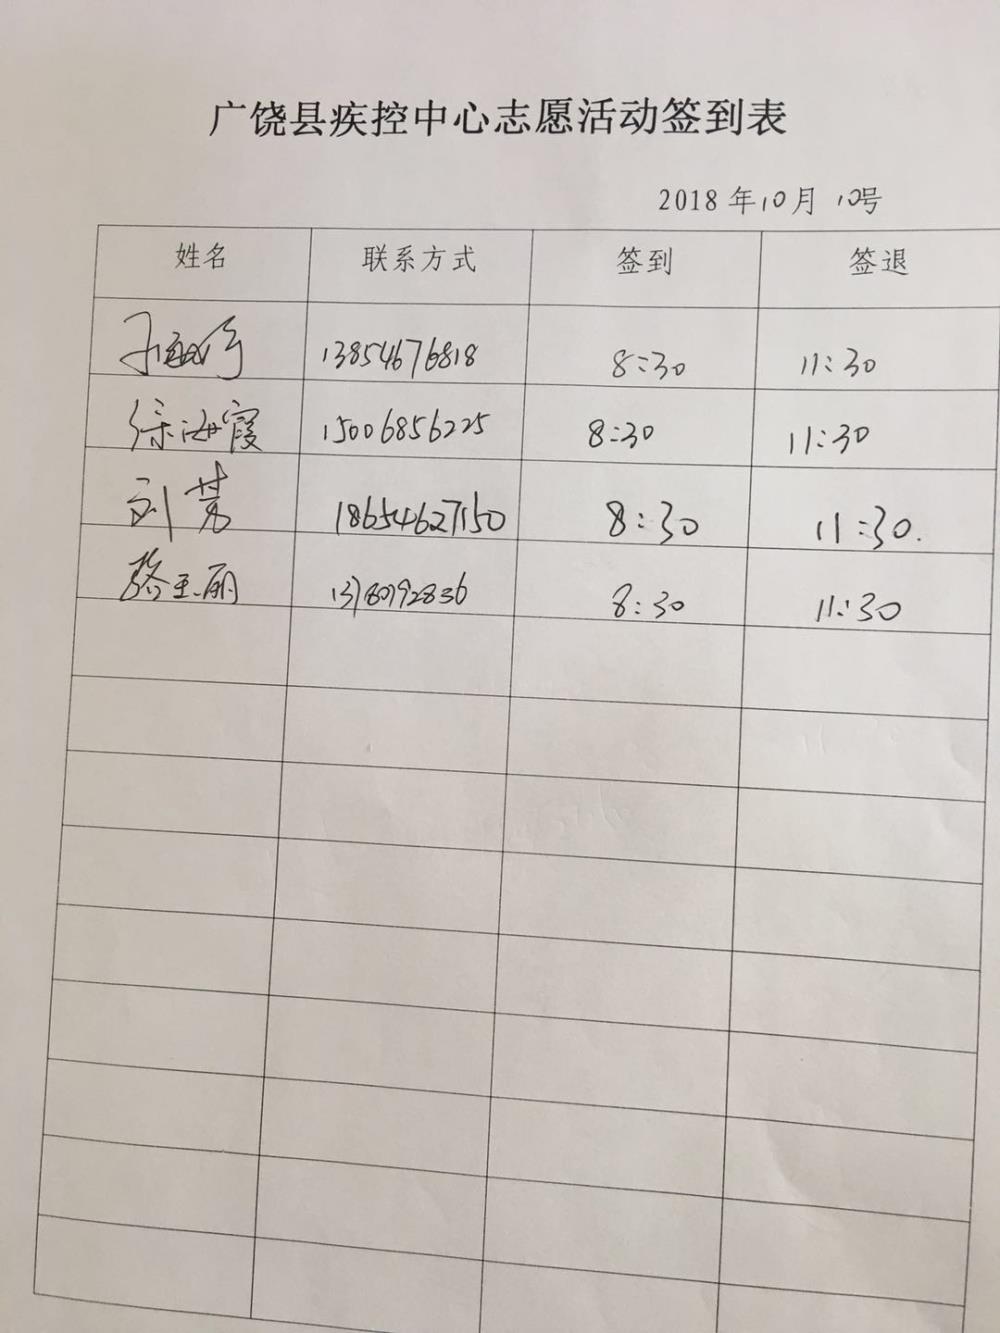 广饶县疾控中心志愿活动签到表
2018年10月10号
姓名 联系方式 签到 签退
13854676818 8:30 11:30
徐海霞 15006856225 8:30 11:30
刘芳 18654627150 8:30 11:30.
骆玉丽 8:30 11:30